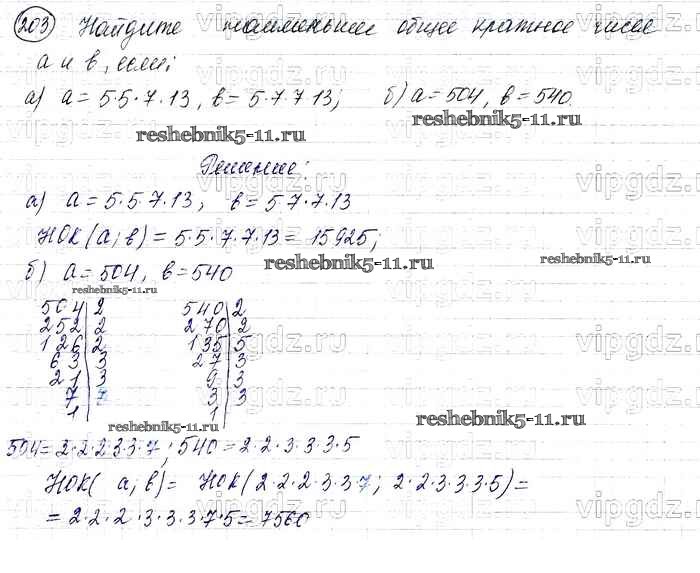 203 Найдите наименьшее общее кратное чисел
a и b, если:
а) a = 5·5·7·13, b = 5·7·7·13; б) a = 504, b = 540.
reshebnik5-11.ru reshebnik5-11.ru
Решение:
а) a = 5·5·7·13, b = 5·7·7·13
НОК(a; b) = 5·5·7·7·13 = 15925;
reshebnik5-11.ru
б) a = 504, b = 540
reshebnik5-11.ru
504 | 2 540 | 2
252 | 2 270 | 2
126 | 2 135 | 5
63 | 3 27 | 3
21 | 3 9 | 3
7 | 7 3 | 3
1 | 1 |
reshebnik5-11.ru reshebnik5-11.ru
504 = 2·2·2·3·3·7; 540 = 2·2·3·3·3·5
НОК(a; b) = НОК(2·2·2·3·3·7; 2·2·3·3·3·5) =
= 2·2·2·3·3·3·7·5 = 7560
vipgdz.ru